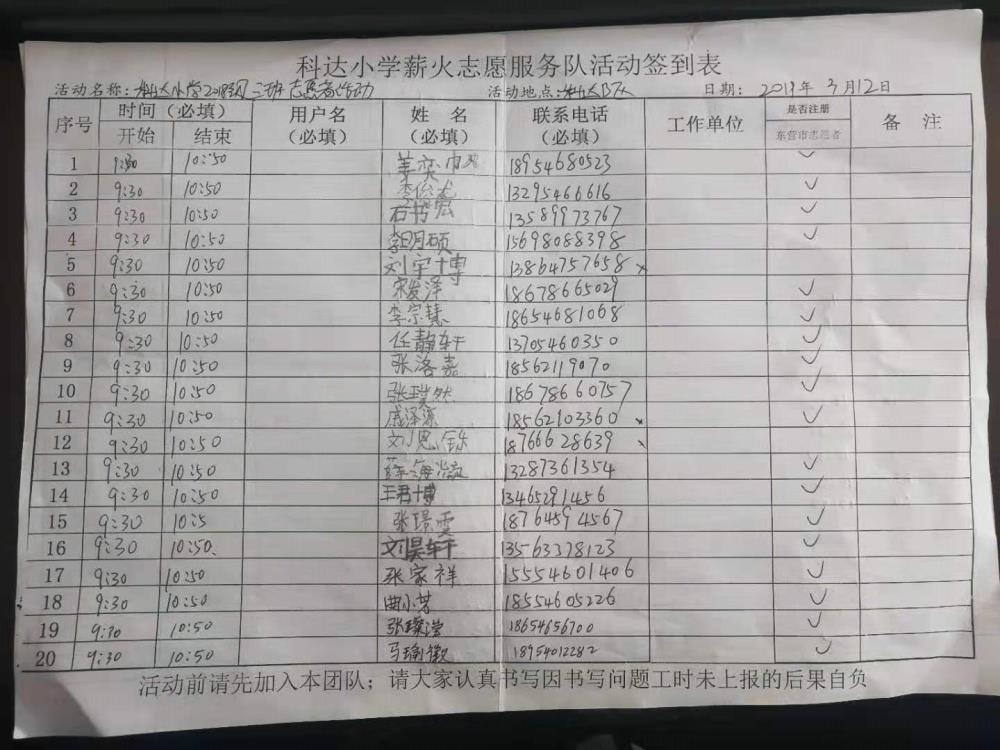 科达小学薪火志愿服务队活动签到表
活动名称：科达小学2018级三班志愿者活动 活动地点： 日期： 2019年3月12日
序号 时间（必填） 用户名（必填） 姓 名（必填） 联系电话（必填） 工作单位 是否注册东营市志愿者 备 注
开始 结束
1 9:30 10:50 18954680523 ✓
2 9:30 10:50 13295466616 ✓
3 9:30 10:50 石书宏 13589973767 ✓
4 9:30 10:50 李明硕 15698088398 ✓
5 9:30 10:50 刘宇博 13864757658 ×
6 9:30 10:50 宋发泽 18678665029 ✓
7 9:30 10:50 李宗慧 18654681068 ✓
8 9:30 10:50 任静轩 13705460350 ✓
9 9:30 10:50 张洛嘉 18562119070 ✓
10 9:30 10:50 张璞然 18678660757 ✓
11 9:30 10:50 18562103360 ×
12 9:30 10:50 刘恩铄 18766628639 ×
13 9:30 10:50 13287361354 ✓
14 9:30 10:50 王君博 13465291456 ✓
15 9:30 10:5 张璟雯 18764594567 ✓
16 9:30 10:50. 刘昊轩 13563378123 ✓
17 9:30 10:50 张家祥 15554601406 ✓
18 9:30 10:50 曲小芳 18554605226 ✓
19 9:30 10:50 张璨滢 18654656700 ✓
20 9:30 10:50 18954012282 ✓
活动前请先加入本团队；请大家认真书写因书写问题工时未上报的后果自负